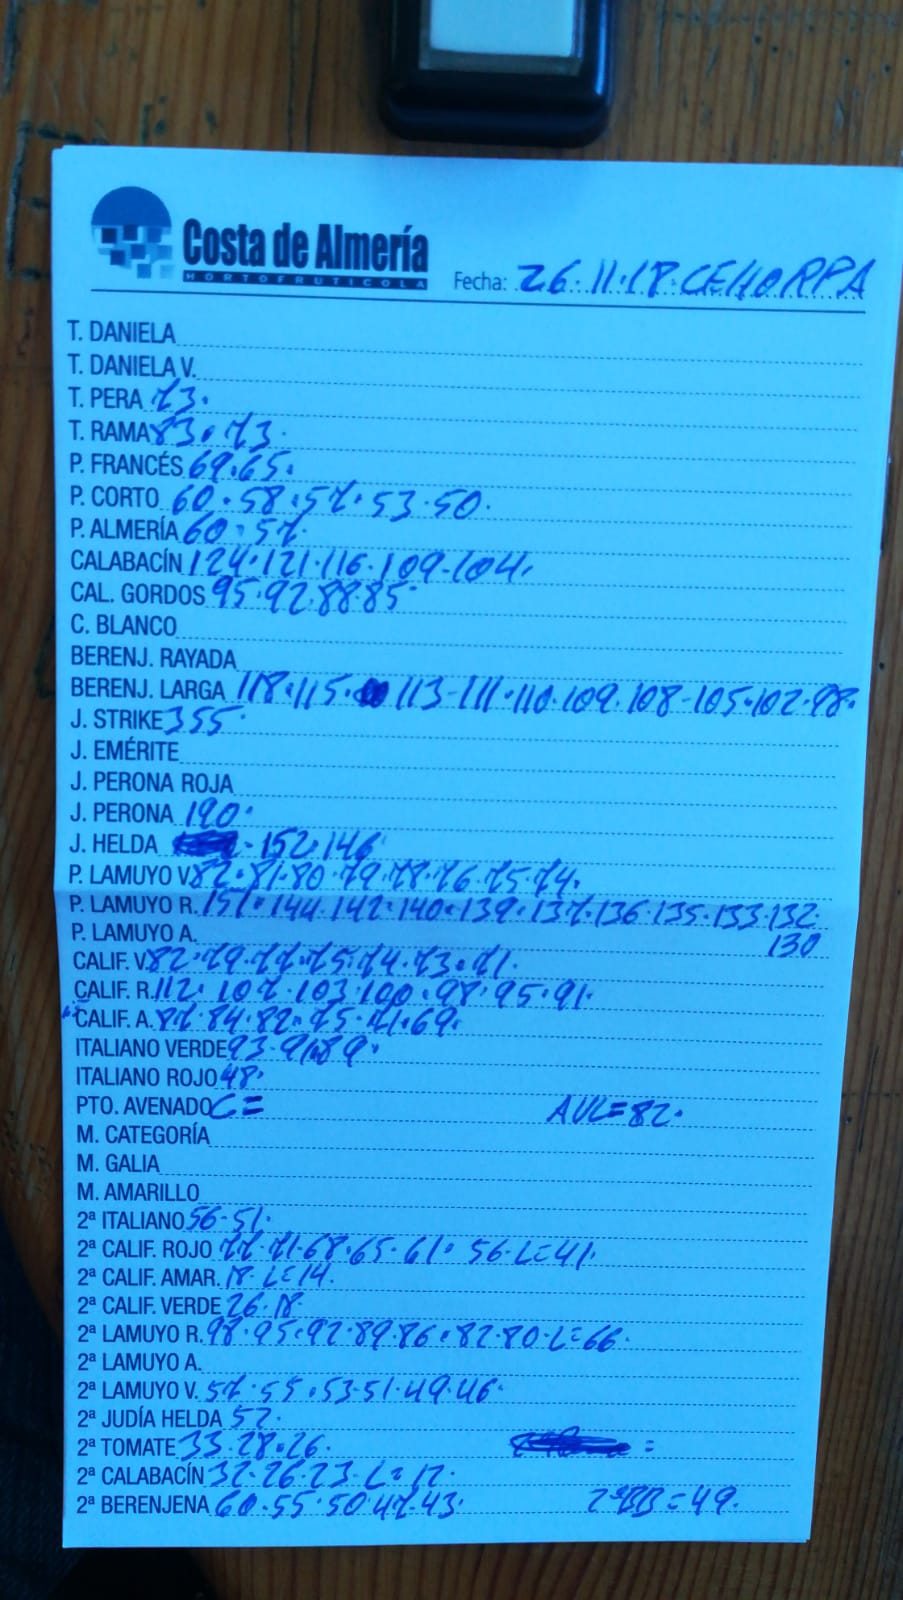 Costa de Almería
HORTOFRUTICOLA
Fecha: 26.11.18.CEHORPA
T. DANIELA
T. DANIELA V.
T. PERA 73.
T. RAMA 83.73.
P. FRANCÉS 69.65.
P. CORTO 60.58.57.53.50.
P. ALMERÍA 60.57.
CALABACÍN 124.121.116.109-104.
CAL. GORDOS 95.92.88 85.
C. BLANCO
BERENJ. RAYADA
BERENJ. LARGA 118.115. 113-111.110.109.108-105.102.98.
J. STRIKE 355.
J. EMÉRITE
J. PERONA ROJA
J. PERONA 190.
J. HELDA . 152.146
P. LAMUYO V. 82.81.80.79.78.76.75.74.
P. LAMUYO R. 151.144.142.140.139.137.136.135.133.132.
130
P. LAMUYO A.
CALIF. V. 82.79.77.75.74.73.71.
CALIF. R. 112.107.103.100.98.95.91.
CALIF. A. 87.84.82.75.71.69.
ITALIANO VERDE 93.91.89.
ITALIANO ROJO 48.
PTO. AVENADO C= AVL=82.
M. CATEGORÍA
M. GALIA
M. AMARILLO
2ª ITALIANO 56.51.
2ª CALIF. ROJO 77.71.68.65.61.56.L=41.
2ª CALIF. AMAR. 18.L=14.
2ª CALIF. VERDE 26.18.
2ª LAMUYO R. 98.95.92.89.86.82.80.L=66.
2ª LAMUYO A.
2ª LAMUYO V. 57.55.53.51.49.46.
2ª JUDÍA HELDA 52.
2ª TOMATE 33.28.26. =
2ª CALABACÍN 32.26.23.L=12.
2ª BERENJENA 60.55.50.47.43. 2ªBB=49.